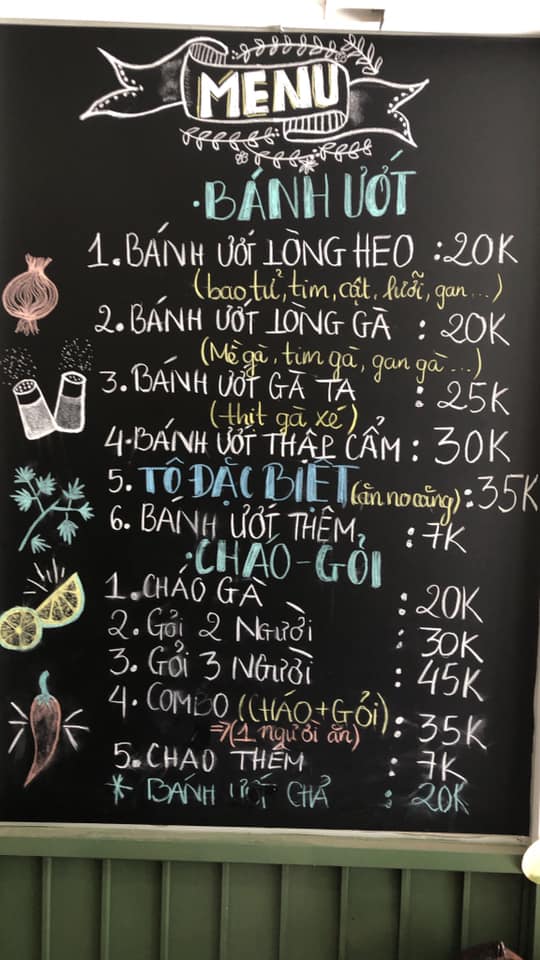 MENU
·BÁNH ƯỚT
1. BÁNH ƯỚT LÒNG HEO : 20K
(bao tử, tim, cật, lưỡi, gan...)
2. BÁNH ƯỚT LÒNG GÀ : 20K
(Mề gà, tim gà, gan gà...)
3. BÁNH ƯỚT GÀ TA : 25K
(thịt gà xé)
4. BÁNH ƯỚT THẬP CẨM : 30K
5. TÔ ĐẶC BIỆT (ăn no căng) : 35K
6. BÁNH ƯỚT THÊM : 7K
·CHÁO-GỎI
1. CHÁO GÀ : 20K
2. GỎI 2 NGƯỜI : 30K
3. GỎI 3 NGƯỜI : 45K
4. COMBO (CHÁO+GỎI) : 35K
⇒(1 người ăn)
5. CHAO THÊM : 7K
* BÁNH ƯỚT CHẢ : 20K